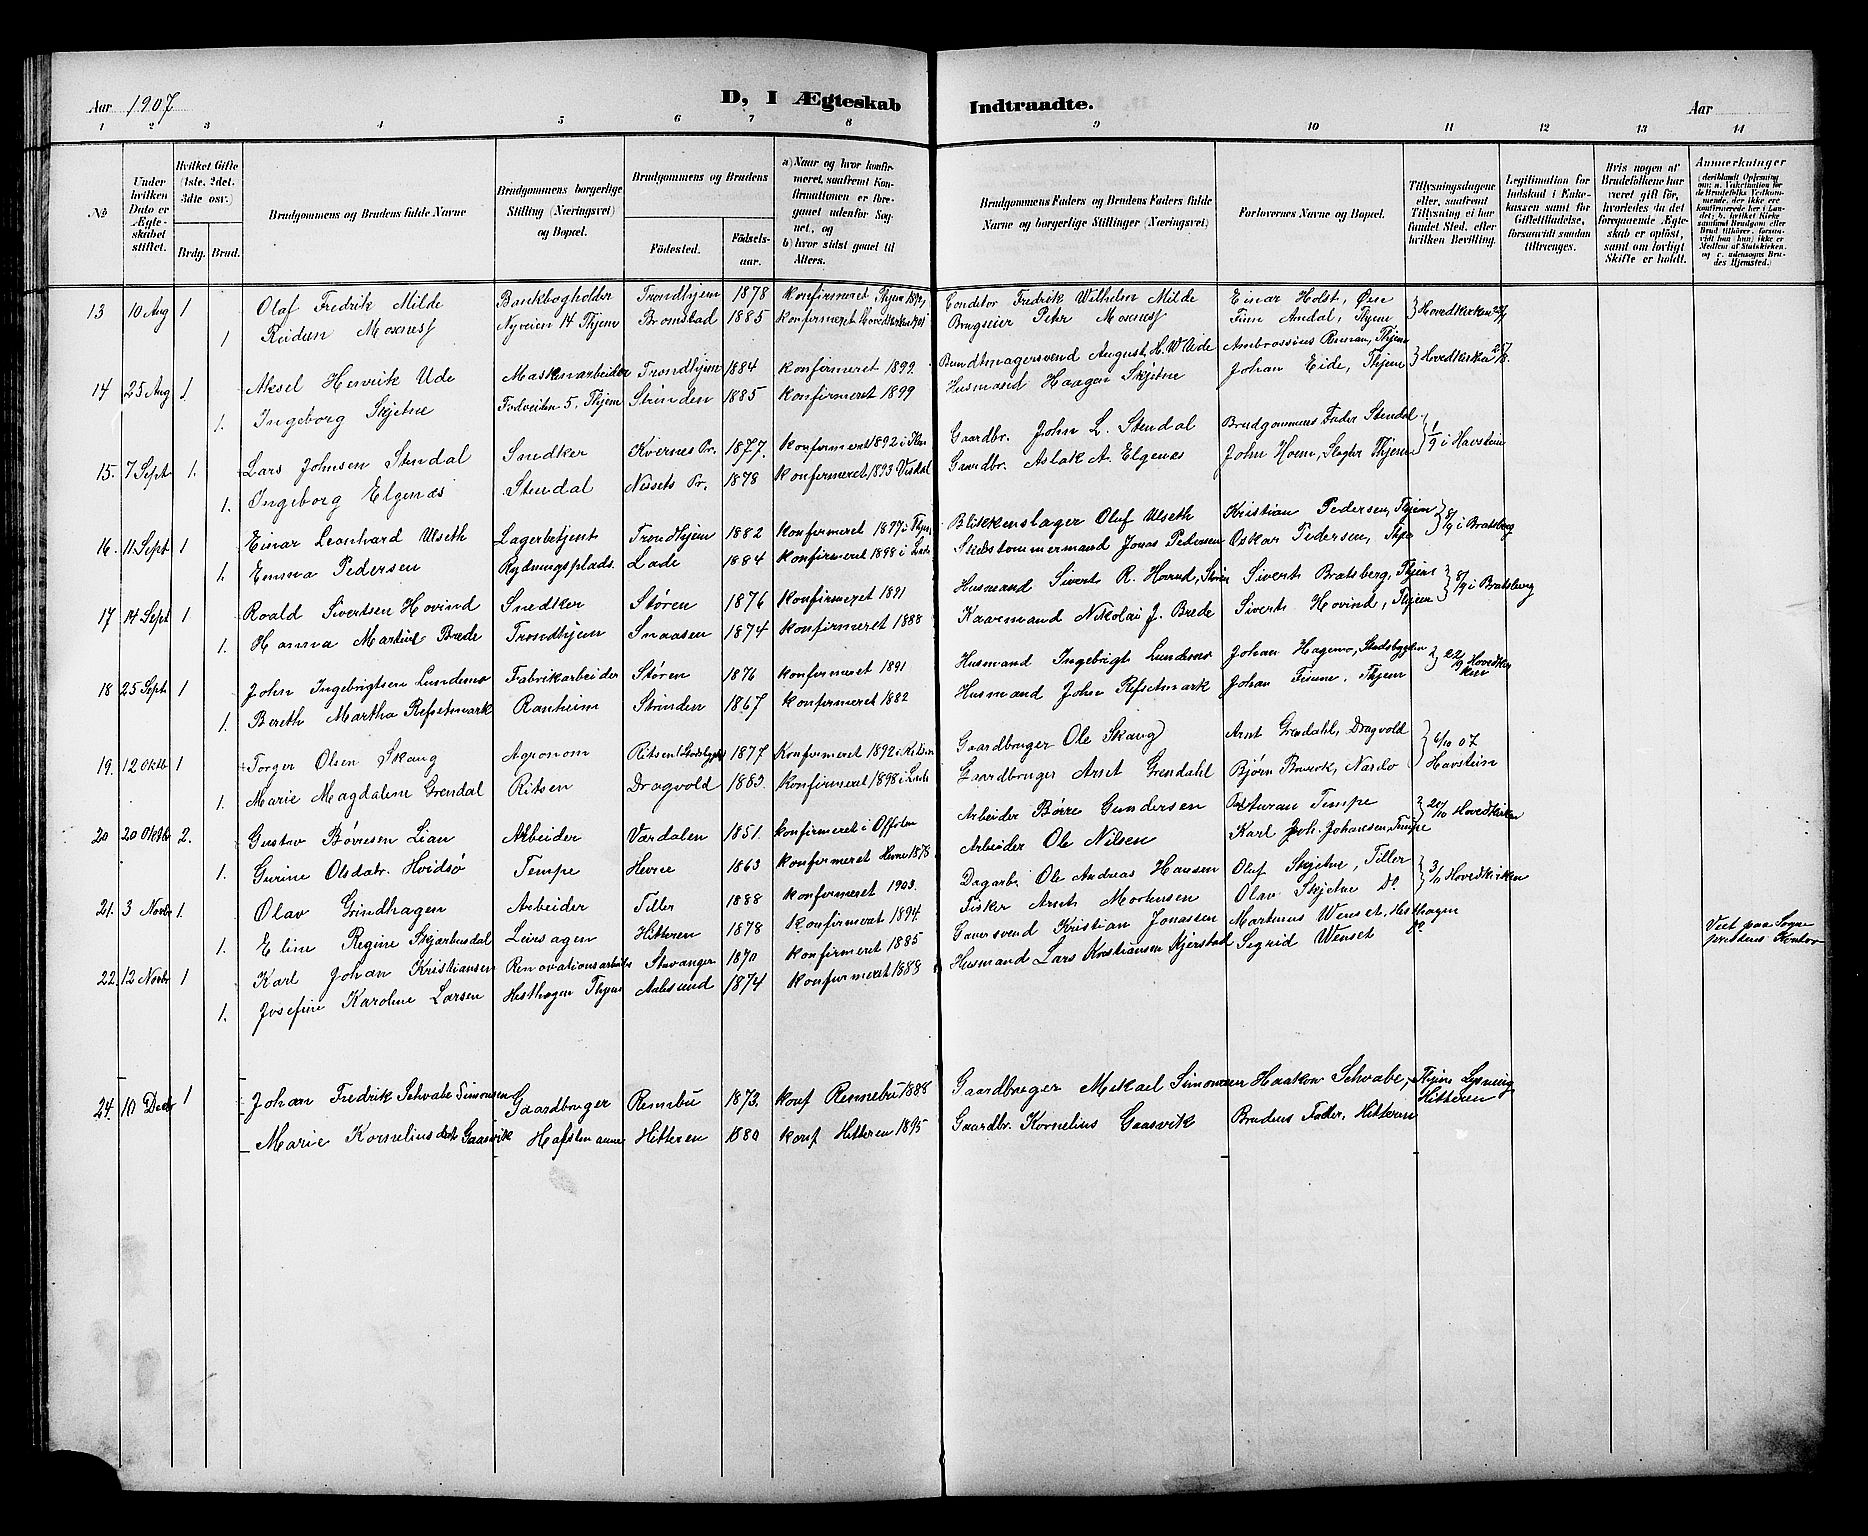 Aar 1907
D, I Ægteskab Indtraadte.
Aar
1 2 3 4 5 6 7 8 9 10 11 12 13 14
No
Under hvilken Dato er Ægteskabet stiftet.
Hvilket Gifte (1ste, 2det, 3die osv.)
Brdg. Brud.
Brudgommens og Brudens fulde Navne
Brudgommens borgerlige Stilling (Næringsvei) og Bopæl.
Brudgommens og Brudens
Fødested. Fødselsaar.
a) Naar og hvor konfirmeret, saafremt Konfirmationen er foregaaet udenfor Sognet, og
b) hvor sidst gaaet til Alters.
Brudgommens Faders og Brudens Faders fulde Navne og borgerlige Stillinger (Næringsvei)
Forlovernes Navne og Bopæl.
Tillysningsdagene eller, saafremt Tillysning ei har fundet Sted, efter hvilken Bevilling.
Legitimation for Indskud i Enkekassen samt for Giftetilladelse, forsaavidt saadan tiltrænges.
Hvis nogen af Brudefolkene har været gift før, hvorledes da det foregaaende Ægteskab er opløst, samt om lovligt Skifte er holdt.
Anmerkninger
(deriblandt Oplysning om: a. Vakcination for de Brudefolks Vedkommende, der ikke ere konfirmerede her i Landet; b. hvilket Kirkesamfund Brudgom eller Brud tilhører, forsaavidt han (hun) ikke er Medlem af Statskirken, og c. udensogns Brudes Hjemsted.)
13 10 Aug 1 Olaf Fredrik Milde Bankbogholder Trondhjem 1878 konfirmeret Thjem Conditor Fredrik Wilhelm Milde Einar Holst, Hovedkirken
1 Reidun Moxness Nyveien 14 Thjem Bromstad 1885 konfirmeret Hovedkirken 1901 Brugseier Peter Moxness Finn Andal, Thjem
14 25 Aug 1 Aksel Henrik Ude Maskinarbeider Trondhjem 1884 konfirmeret 1899 Bundtmagersvend August H. W. Ude Ambrosius Thjem Hovedkirken
1. Ingeborg Skjetne 5, Thjem Strinden 1885 konfirmeret 1899 Husmand Haagen Skjetne Johan Eide, Thjem
15. 7 Sept 1. Lars Johnsen Stendal Snedker Kvernes Pr. 1877. konfirmeret 1892 i Gaardbr. John L. Stendal Brudgommens Fader Stendal 1/9 i Havstein
1. Ingeborg Elgenæs Stendal Nessets Pr. 1878 konfirmeret 1893 Gaardbr. Aslak A. Elgenes John Hoem, Thjem
16. 11 Sept 1 Einar Leonhard Ulseth Lagerbetjent Trondhjem 1882 konfirmeret 1897 i Thjem Blikkenslager Oluf Ulseth Kristian Pedersen, Thjem 8/9 i Bratsberg
1. Emma Pedersen Rydningsplads. Lade 1884 konfirmeret 1898 i Lade Jonas Pedersen Oskar Pedersen, Thjem
17 14 Sept 1 Roald Sivertsen Hovind Snedker Støren 1876 konfirmeret 1891 Husmand Sivert R. Støren Sivert Bratsberg, Thjem 8/9 i Bratsberg
1. Hanna Martine Brede Trondhjem Snaasen 1874 konfirmeret 1888 Kaarmand Nikolai J. Brede Sivert Hovind, Thjem
18 25 Sept 1 John Ingebrigtsen Lundemo Fabrikarbeider Støren 1876 konfirmeret 1891 Husmand Ingebrigt Lundemo Johan Hagemo, Stadsbygden 22/9 Hovedkirken
1. Bereth Martha Refsetmark Ranheim Strinden 1867 konfirmeret 1882 Husmand John Refsetmark Johan Thjem
19. 12 Oktb 1 Torger Olsen Skaug Agronom Ritsen Stadsbygd 1877 Konfirmeret 1892 i Gaardbruger Ole Skaug Arnt Grendahl, Dragvold 6/10 07
1. Marie Magdaline Grendal Ritsen Dragvold 1883 konfirmeret 1898 i Lade Gaardbruger Arnt Grendahl Bjørn Nardo Havstein
20 20 Oktbr 2. Gustav Børesen Lian Arbeider Værdalen 1851. konfirmeret i Arbeider Børre Gundersen Tempe 20/10 Hovedkirken
1. Gurine Olsdatr. Hvidsø Tempe Hevne 1863 konfirmeret Hevne 1878 Arbeider Ole Nilsen Karl Joh. Johansen, Tempe
21. 3 Novbr 1. Olav Grindhagen Arbeider Tiller 1888 konfirmeret 1903. Dagarb. Ole Andreas Hansen Oluf Skjetne, Tiller 3/11 Hovedkirken
1. Eline Regine Skjærbusdal Leirsagen Hitteren 1878 konfirmeret 1894. Fisker Arnt Mortensen Olav Skjetne Do
22. 12 Novbr 1 Karl Johan Kristiansen Renovationsarbeider Stavanger 1870 konfirmeret 1885 Garversvend Kristian Jonassen Martinus Wenset, Hesthagen Viet paa Sogneprestens Kontor
1. Josefine Karoline Larsen Hesthagen Thjem Aalesund 1874 konfirmeret 1889 Husmand Lars Kristiansen Kjerstad Sigrid Wenset Do
24. 10 Decbr 1 Johan Fredrik Schvabe Simonsen Gaardbruger Rennebu 1873. konf Rennebu 1888 Gaardbruger Mikael Simonsen Haakon Schvabe, Thjem Lysning Hitteren
Marie Korneliusdatr Gaasvik Hafsten anneks Hitteren 1880 konf Hitteren 1895 Gaardbr. Kornelius Gaasvik Brudens Fader, Hitteren